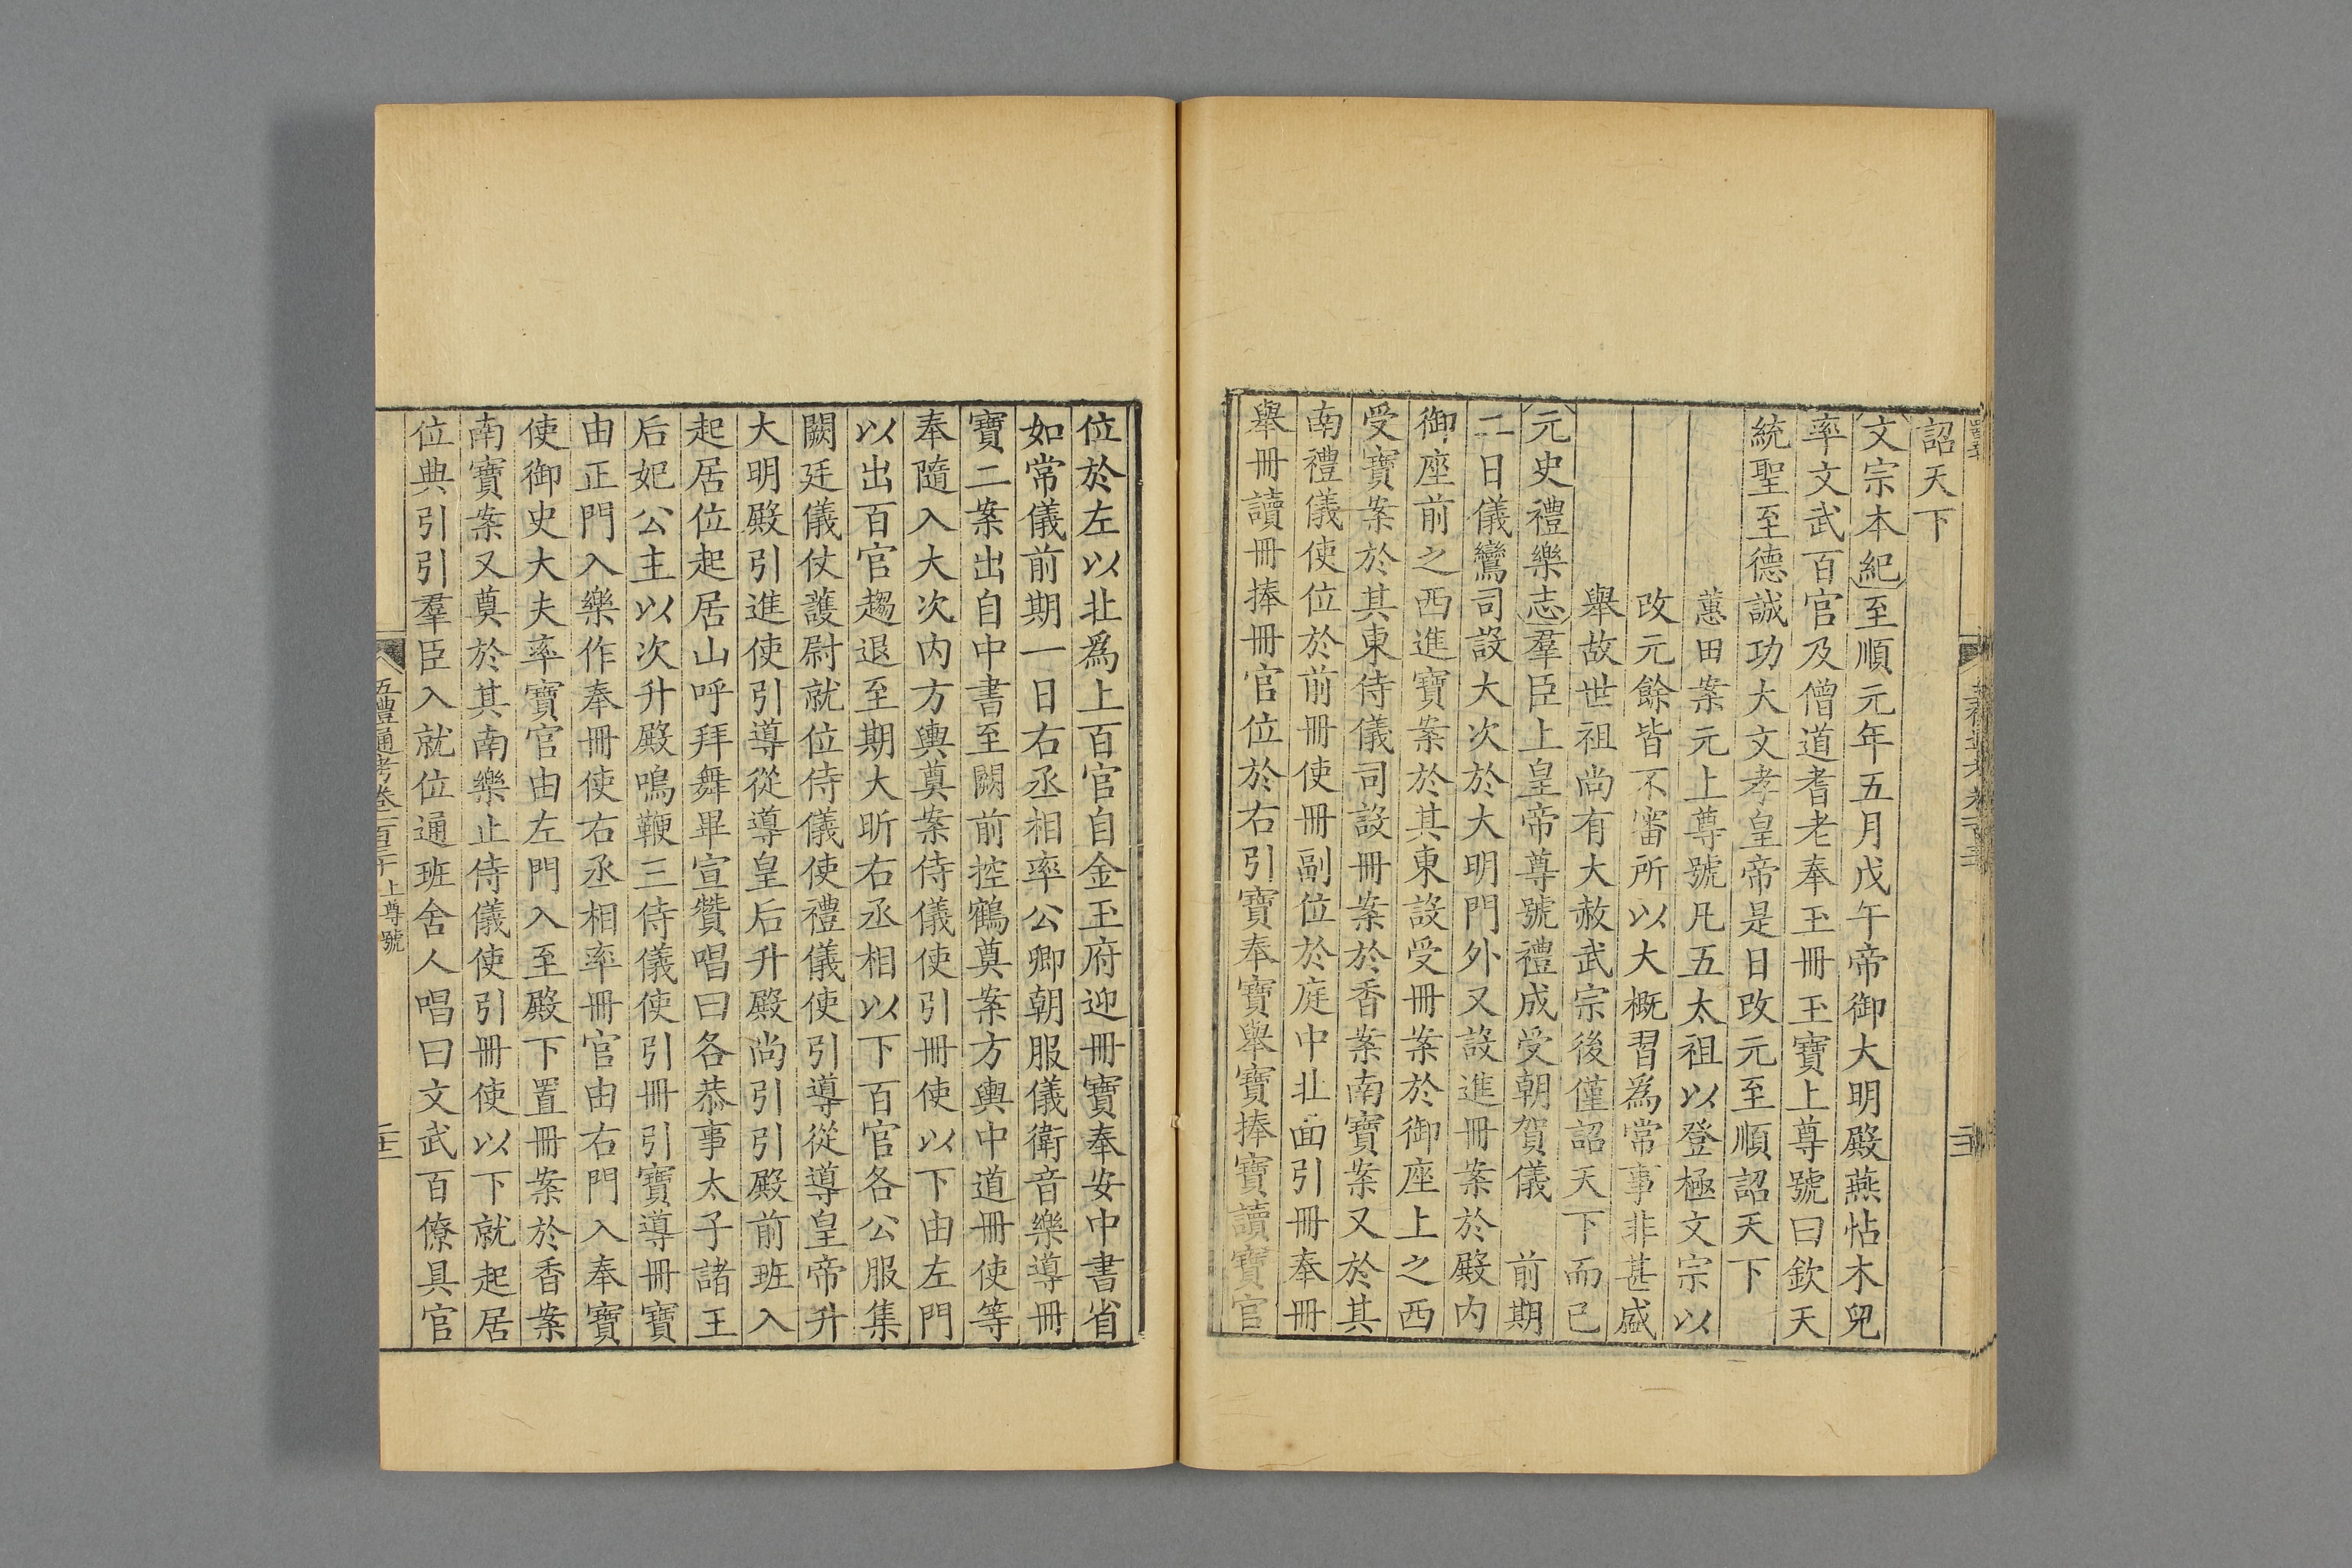 詔天下
文宗本紀至順元年五月戊午帝御大明殿燕帖木兒
率文武百官及僧道耆老奉玉冊玉寶上尊號曰欽天
統聖至德誠功大文孝皇帝是日改元至順詔天下
蕙田案元上尊號凡五太祖以登極文宗以
改元餘皆不審所以大概習為常事非甚盛
舉故世祖尚有大赦武宗後僅詔天下而已
元史禮樂志羣臣上皇帝尊號禮成受朝賀儀　前期
二日儀鸞司設大次於大明門外又設進冊案於殿內
御座前之西進寶案於其東設受冊案於御座上之西
受寶案於其東侍儀司設冊案於香案南寶案又於其
南禮儀使位於前冊使冊副位於庭中北面引冊奉冊
舉冊讀冊捧冊官位於右引寶奉寶舉寶捧寶讀寶官
位於左以北爲上百官自金玉府迎冊寶奉安中書省
如常儀前期一日右丞相率公卿朝服儀衛音樂導冊
寶二案出自中書至闕前控鶴奠案方輿中道冊使等
奉隨入大次內方輿奠案侍儀使引冊使以下由左門
以出百官趨退至期大昕右丞相以下百官各公服集
闕廷儀仗護尉就位侍儀使禮儀使引導從導皇帝升
大明殿引進使引導從導皇后升殿尚引引殿前班入
起居位起居山呼拜舞畢宣贊唱曰各恭事太子諸王
后妃公主以次升殿鳴鞭三侍儀使引冊引寶導冊寶
由正門入樂作奉冊使右丞相率冊官由右門入奉寶
使御史大夫率寶官由左門入至殿下置冊案於香案
南寶案又奠於其南樂止侍儀使引冊使以下就起居
位典引引羣臣入就位通班舍人唱曰文武百僚具官
五禮通考卷一百三十 上尊號